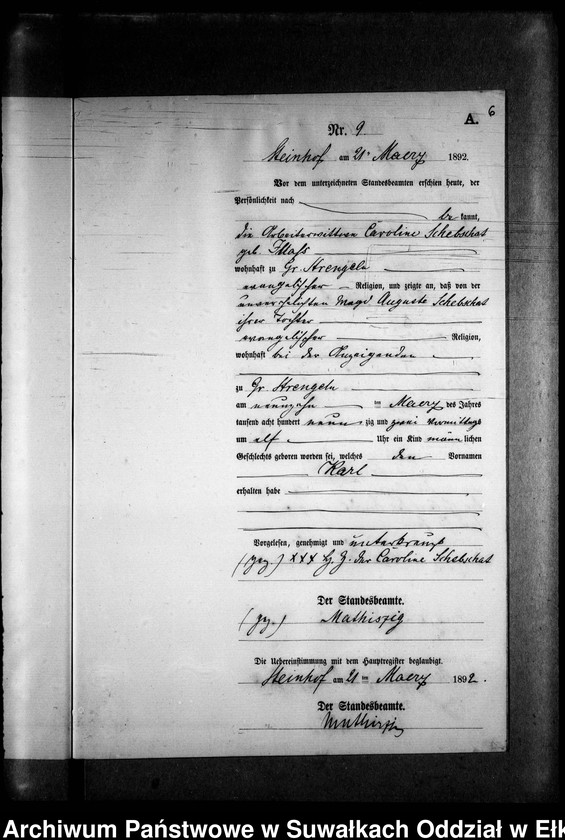 6
A.
Nr. 9
Steinhof am 21. Maerz 1892.
Vor dem unterzeichneten Standesbeamten erschien heute, der
Persönlichkeit nach
be kannt,
die Arbeiterwittwe Caroline Schebschat
geb.
wohnhaft zu Gr. Strengeln
evangelischer Religion, und zeigte an, daß von der
unverehelichten Magd Auguste Schebschat
ihrer Tochter
evangelischer Religion,
wohnhaft bei der Anzeigenden
zu Gr. Strengeln
am neunzehn ten Maerz des Jahres
tausend acht hundert neun zig und zwei Vormittags
um elf Uhr ein Kind männ lichen
Geschlechts geboren worden sei, welches den Vornamen
Karl
erhalten habe
Vorgelesen, genehmigt und unterkreuzt
(gez.) XXX Hz. der Caroline Schebschat
Der Standesbeamte.
(gez.) Mathiszig
Die Uebereinstimmung mit dem Hauptregister beglaubigt.
Steinhof am 21 ten Maerz 1892.
Der Standesbeamte.
Mathiszig
Archiwum Państwowe w Suwałkach Oddział w Ełk